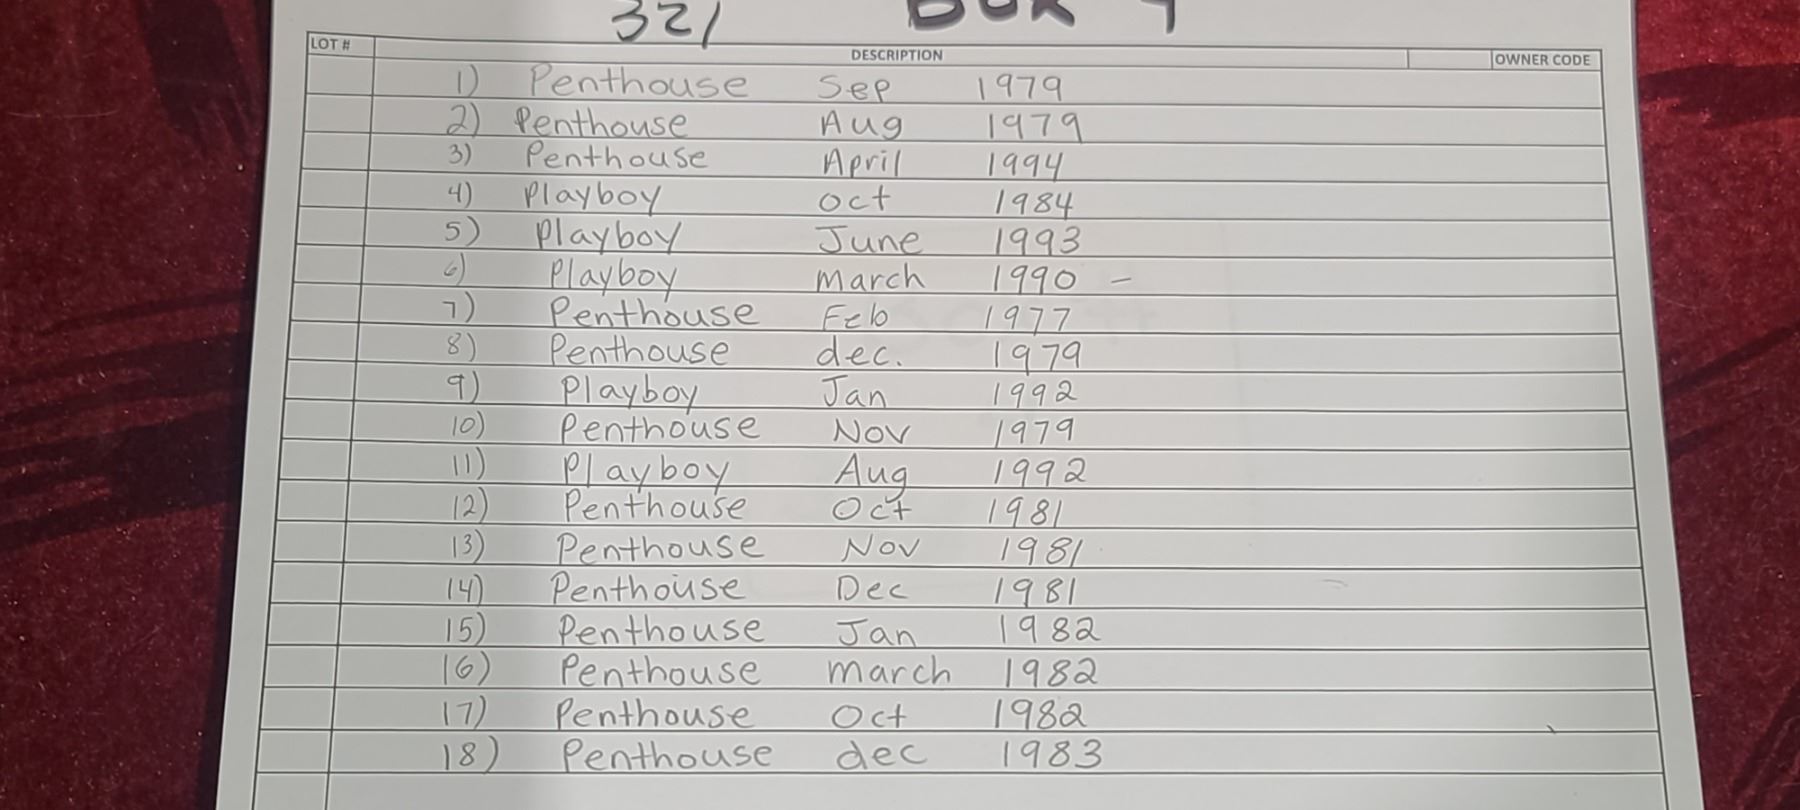 321 Box
LOT # DESCRIPTION OWNER CODE
1) Penthouse Sep 1979
2) Penthouse Aug 1979
3) Penthouse April 1994
4) Playboy Oct 1984
5) Playboy June 1993
6) Playboy March 1990 –
7) Penthouse Feb 1977
8) Penthouse dec. 1979
9) Playboy Jan 1992
10) Penthouse Nov 1979
11) Playboy Aug 1992
12) Penthouse Oct 1981
13) Penthouse Nov 1981
14) Penthouse Dec 1981
15) Penthouse Jan 1982
16) Penthouse march 1982
17) Penthouse Oct 1982
18) Penthouse dec 1983